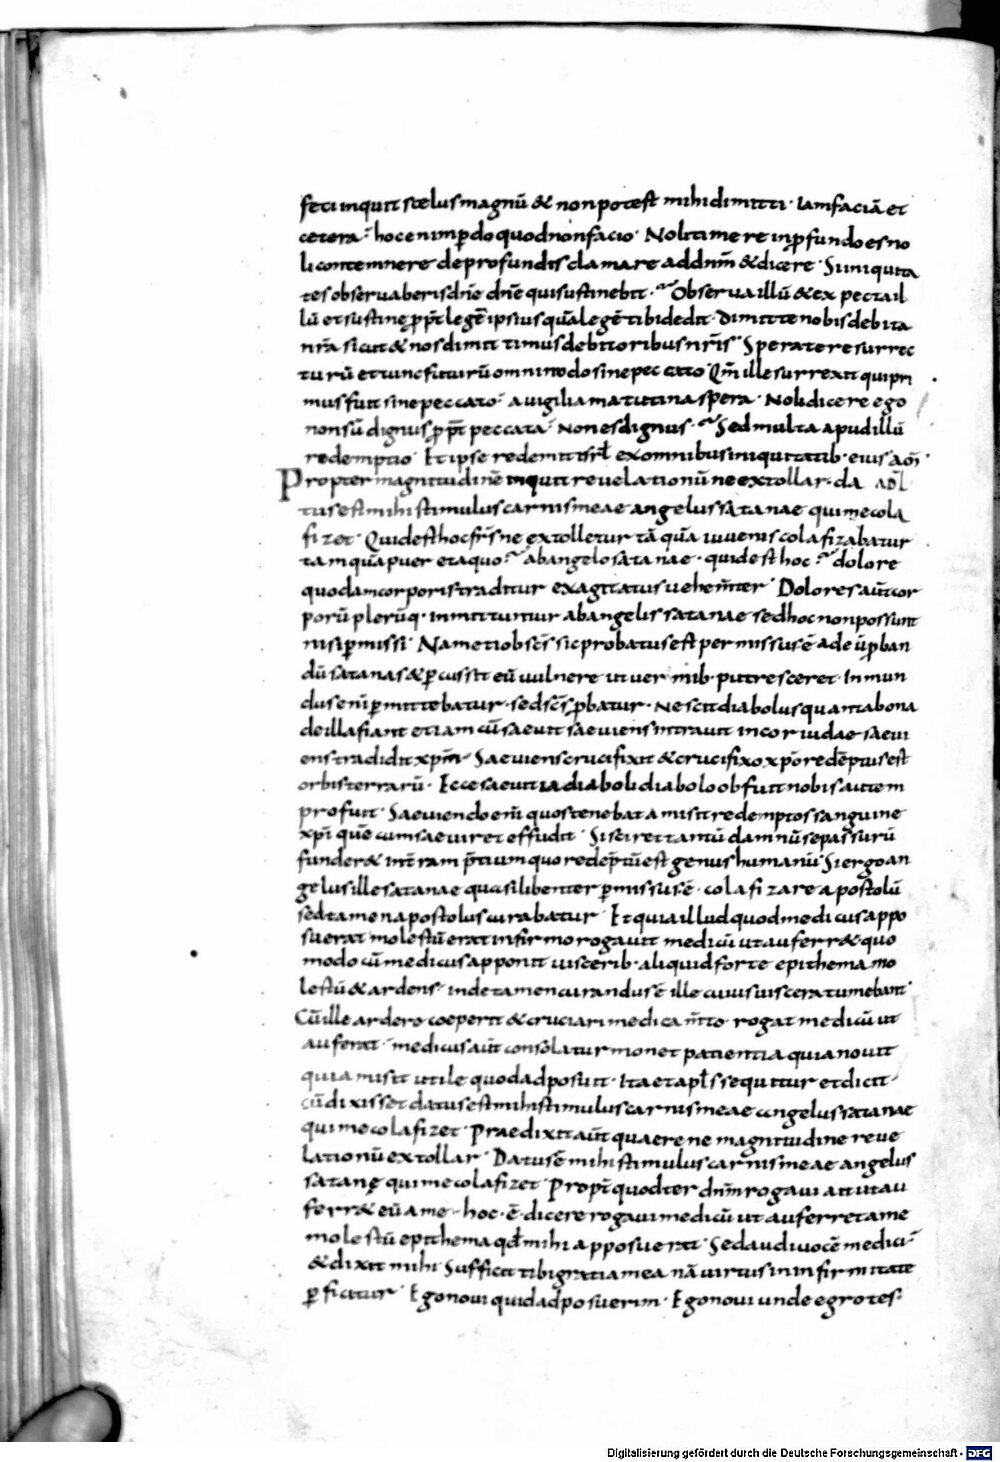 feci inquit scelus magnū & non potest mihi dimitti· Iam faciā et
cetera· hoc enim ꝑdo quod non facio· Noli timere in ꝓfundo es no
li contemnere de profundis clamare ad dnm̄ & dicere· Si iniquita
tes observaberis dn̄e dn̄e quis sustinebit· Observa illū & expecta il
lū et sustine ꝓpt̄ legē ipsius quā legē tibi dedit· Dimitte nobis debita
nr̄a sicut & nos dimittimus debitoribus nr̄is· Sperate resurrec
turū et tunc futurū omnimodo sine peccato· Qm̄ ille surrexit qui pri
mus fuit sine peccato· a vigilia matutina spera· Noli dicere ego
non sū dignus ꝓpt̄ peccata· Non es dignus· Sed multa apud illū
redemptio· Et ipse redemit isrl̄ ex omnibus iniquitatib· eius
Propter magnitudinē inquit revelationū ne extollar· da
tus est mihi stimulus carnis meae angelus satanae qui me cola
fizet· Quid est hoc frs̄ ne extolletur tā quā iuvenis colafizabatur
tam quā puer et a quo· ab angelo satanae· quid est hoc· dolore
quodam corporis traditur exagitatus vehem̄ter· Dolores aūt cor
porū plerūq· inmittuntur ab angelis satanae sed hoc non possunt
nisi ꝑmissi· Nam et iob scs̄ sic probatus est permissus ē ad eū ꝓban
dū satanas & ꝑcussit eū vulnere ut vermib· putresceret· Inmun
dus enī ꝑmittebatur· sed scs̄ ꝓbatur· Nescit diabolus quanta bona
de illa fiant etiam cū saevit saeviens intravit in cor iudae saevi
ens tradidit xpm̄· Saeviens crucifixit & crucifixo xp̄o redēptus est
orbis terrarū· Ecce saevitia diaboli diabolo obfuit nobis autem
profuit· Saeviendo enī quos tenebat amisit redemptos sanguine
xpī quē cum saeviret effudit· Si sciret tantū damnū se passurū
funder& int̄ram p̄tium quo redēptū est genus humanū· Si ergo an
gelus ille satanae quasi libenter ꝑmissus ē· colafizare apostolū
sed tamen apostolus curabatur· Et quia illud quod medicus appo
suerat molestū erat infirmo rogavit medicū ut auferr& quo
modo cū medicus apponit viscerib· aliquid forte epithema mo
lestū & ardens· inde tamen curandus ē ille cuius viscera tumebant·
Cū ille ardere coeperit & cruciari medicam̄to· rogat medicū ut
auferat· medicus aūt consolatur monet patientia quia novit
quia misit utile quod adposuit· Ita et apl̄s sequitur et dicit·
cū dixisset datus est mihi stimulus carnis meae angelus satanae
qui me colafizet· Praedixit aūt quaere ne magnitudine reve
lationū extollar· Datus ē mihi stimulus carnis meae angelus
satanę qui me colafizet· Propt̄ quod ter dnm̄ rogavi at ut au
ferr& eū a me· hoc· ē· dicere rogavi medicū ut auferret a me
molestū epithema qd̄ mihi apposuerat· Sed audi vocē medici·
& dixit mihi· Sufficit tibi gratia mea nā virtus in infirmitate
ꝑficitur· Ego novi quid adposuerim· Ego novi unde egrotes·
Digitalisierung gefördert durch die Deutsche Forschungsgemeinschaft - DFG